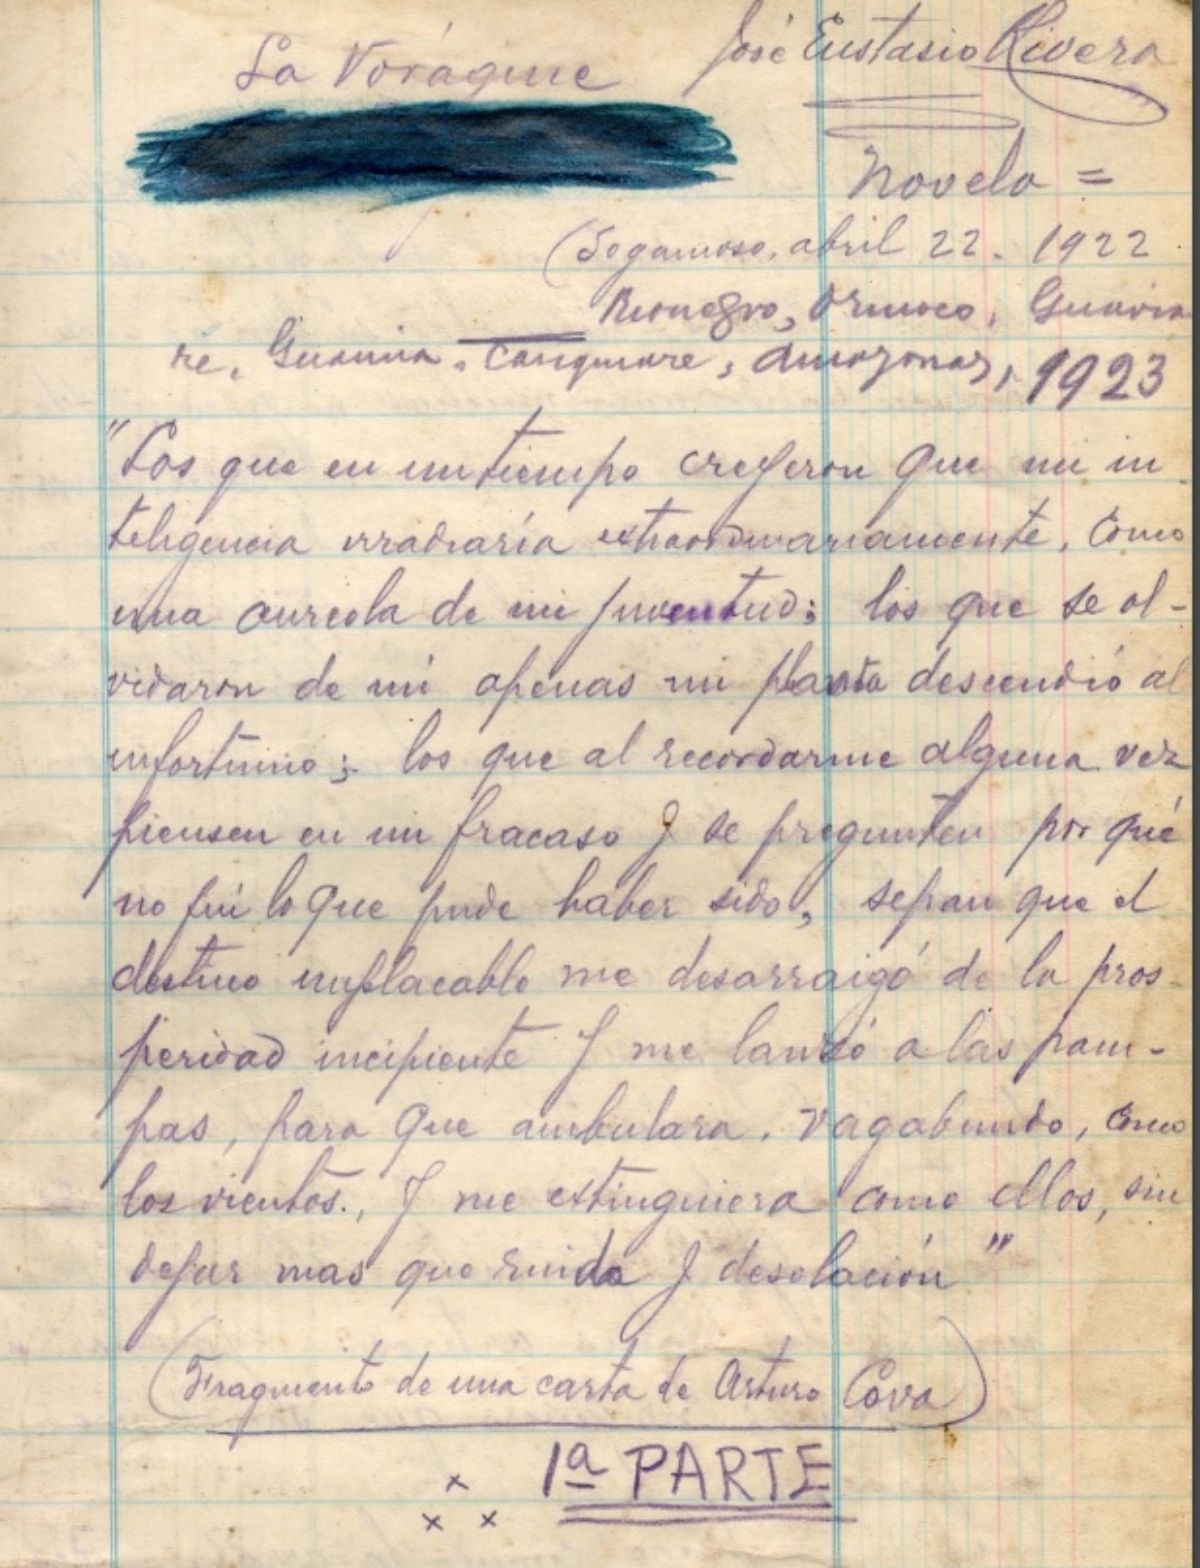 La Vorágine José Eustasio Rivera
Novela =
(Sogamoso, abril 22. 1922
Rionegro, Orinoco, Guavia
re, Guainia. Casiquiare, Amazonas, 1923
"Los que en un tiempo creyeron que mi in
teligencia irradiaría extraordinariamente, como
una aureola de mi juventud; los que se ol-
vidaron de mi apenas mi planta descendió al
infortunio; los que al recordarme alguna vez
piensen en mi fracaso y se pregunten por qué
no fuí lo que pude haber sido, sepan que el
destino implacable me desarraigó de la pros-
peridad incipiente y me lanzó a las pam-
pas, para que ambulara, vagabundo, como
los vientos., y me extinguiera como ellos, sin
dejar mas que ruido y desolación"
(Fragmento de una carta de Arturo Cova)
1ª PARTE
x
x x